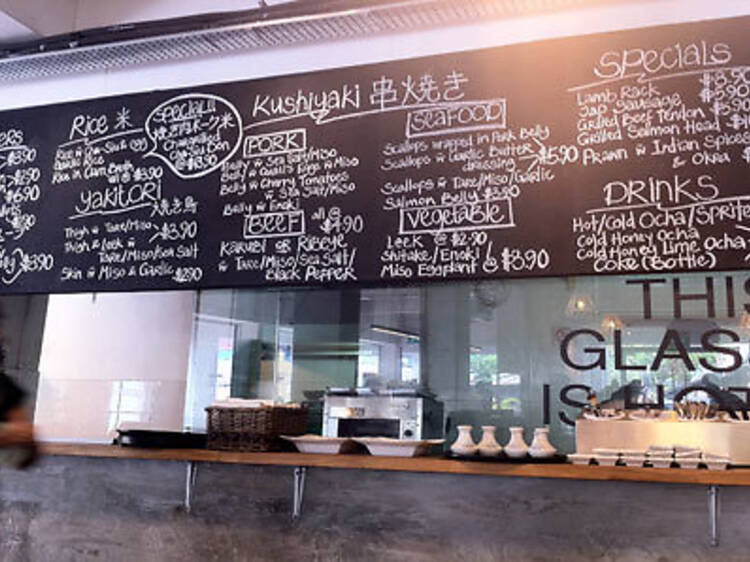 $3.90
$3.90
$6.90
$3.90
$3.90
Rice 米
Rice w Cha Siu & egg
Garlic Rice
Rice in Clam Broth
$3.90
SPECIAL!!
焼き肉ポーク米
Chargrilled
$6.90
YAKITORI
焼き鳥
Thigh w Tare/Miso
Thigh & Leek w
Tare/Miso/Sea Salt
$3.90
Skin w Miso & Garlic $2.90
Kushiyaki 串焼き
PORK
Belly w Sea Salt/Miso
Belly w Quail's Eggs w Miso
Belly w Cherry Tomatoes
w Sea Salt/Miso
Belly w Enoki
all @
$4.90
BEEF
Karubi or Ribeye
w Tare/Miso/Sea Salt/
Black Pepper
SEAFOOD
Scallops wrapped in Pork Belly
Scallops w Garlic Butter
dressing
$5.90
Scallops w Tare/Miso/Garlic
Salmon Belly $3.90
VEGETABLE
Leek @ $2.90
Shitake/Enoki
Miso Eggplant
@ $3.90
SPECIALS
Lamb Rack $8.90
Jap Sausage $5.90
Grilled Beef Tendon
Grilled Salmon Head
Prawn w Indian Spices
& Okra
DRINKS
Hot/Cold Ocha/Sprite
Cold Honey Ocha
Cold Honey Lime Ocha
Coke (Bottle)
THIS
GLASS
IS HOT